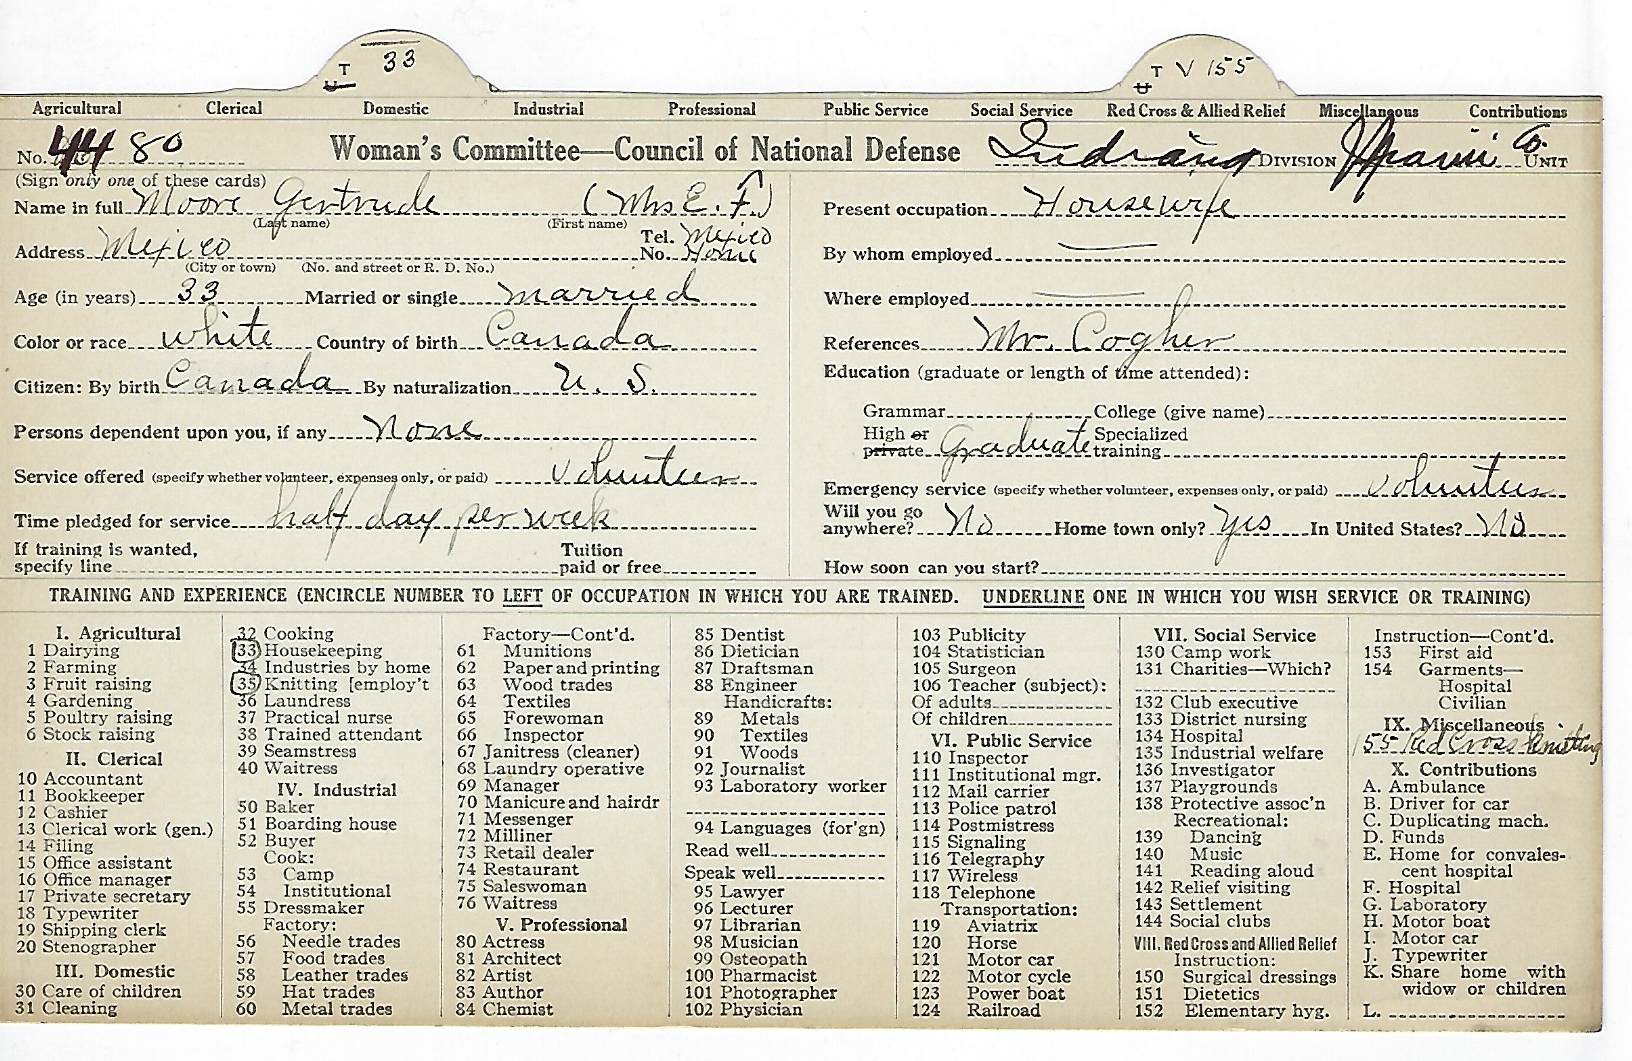 T 33
T V 155
Agricultural Clerical Domestic Industrial Professional Public Service Social Service Red Cross & Allied Relief Miscellaneous Contributions
No. 4480 Woman's Committee—Council of National Defense Indiana DIVISION Miami Co. UNIT
(Sign only one of these cards)
Name in full Moore Gertrude (Mrs E. F.)
(Last name) (First name)
Address Mexico Tel. No. Mexico Home
(City or town) (No. and street or R. D. No.)
Age (in years) 33 Married or single married
Color or race white Country of birth Canada
Citizen: By birth Canada By naturalization U. S.
Persons dependent upon you, if any None
Service offered (specify whether volunteer, expenses only, or paid) volunteer
Time pledged for service half day per week
If training is wanted, specify line Tuition paid or free
Present occupation Housewife
By whom employed
Where employed
References Mr.
Education (graduate or length of time attended):
Grammar College (give name)
High or private Graduate Specialized training
Emergency service (specify whether volunteer, expenses only, or paid) volunteer
Will you go anywhere? No Home town only? Yes In United States? No
How soon can you start?
TRAINING AND EXPERIENCE (ENCIRCLE NUMBER TO LEFT OF OCCUPATION IN WHICH YOU ARE TRAINED. UNDERLINE ONE IN WHICH YOU WISH SERVICE OR TRAINING)
I. Agricultural
1 Dairying
2 Farming
3 Fruit raising
4 Gardening
5 Poultry raising
6 Stock raising
II. Clerical
10 Accountant
11 Bookkeeper
12 Cashier
13 Clerical work (gen.)
14 Filing
15 Office assistant
16 Office manager
17 Private secretary
18 Typewriter
19 Shipping clerk
20 Stenographer
III. Domestic
30 Care of children
31 Cleaning
32 Cooking
33 Housekeeping
34 Industries by home
35 Knitting [employ't
36 Laundress
37 Practical nurse
38 Trained attendant
39 Seamstress
40 Waitress
IV. Industrial
50 Baker
51 Boarding house
52 Buyer
Cook:
53 Camp
54 Institutional
55 Dressmaker
Factory:
56 Needle trades
57 Food trades
58 Leather trades
59 Hat trades
60 Metal trades
Factory—Cont'd.
61 Munitions
62 Paper and printing
63 Wood trades
64 Textiles
65 Forewoman
66 Inspector
67 Janitress (cleaner)
68 Laundry operative
69 Manager
70 Manicure and hairdr
71 Messenger
72 Milliner
73 Retail dealer
74 Restaurant
75 Saleswoman
76 Waitress
V. Professional
80 Actress
81 Architect
82 Artist
83 Author
84 Chemist
85 Dentist
86 Dietician
87 Draftsman
88 Engineer
Handicrafts:
89 Metals
90 Textiles
91 Woods
92 Journalist
93 Laboratory worker
94 Languages (for'gn)
Read well
Speak well
95 Lawyer
96 Lecturer
97 Librarian
98 Musician
99 Osteopath
100 Pharmacist
101 Photographer
102 Physician
103 Publicity
104 Statistician
105 Surgeon
106 Teacher (subject):
Of adults
Of children
VI. Public Service
110 Inspector
111 Institutional mgr.
112 Mail carrier
113 Police patrol
114 Postmistress
115 Signaling
116 Telegraphy
117 Wireless
118 Telephone
Transportation:
119 Aviatrix
120 Horse
121 Motor car
122 Motor cycle
123 Power boat
124 Railroad
VII. Social Service
130 Camp work
131 Charities—Which?
132 Club executive
133 District nursing
134 Hospital
135 Industrial welfare
136 Investigator
137 Playgrounds
138 Protective assoc'n
Recreational:
139 Dancing
140 Music
141 Reading aloud
142 Relief visiting
143 Settlement
144 Social clubs
VIII. Red Cross and Allied Relief
Instruction:
150 Surgical dressings
151 Dietetics
152 Elementary hyg.
Instruction—Cont'd.
153 First aid
154 Garments—
Hospital
Civilian
IX. Miscellaneous
155 Red Cross Knitting
X. Contributions
A. Ambulance
B. Driver for car
C. Duplicating mach.
D. Funds
E. Home for convales-
cent hospital
F. Hospital
G. Laboratory
H. Motor boat
I. Motor car
J. Typewriter
K. Share home with
widow or children
L.